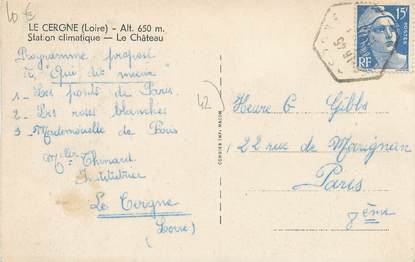 10 €
LE CERGNE (Loire) - Alt. 650 m.
Station climatique — Le Château
Programme proposé
"Qui dit mieux"
1 - Les ponts de Paris.
2 - Les roses blanches
3 - Mademoiselle de Paris
Thinard
Institutrice
Le Cergne
(Loire)
42
COMBIER IMP. MACON
15F
POSTES
RF
Heure G. Gibbs
22 rue de Marignan
Paris
8ème